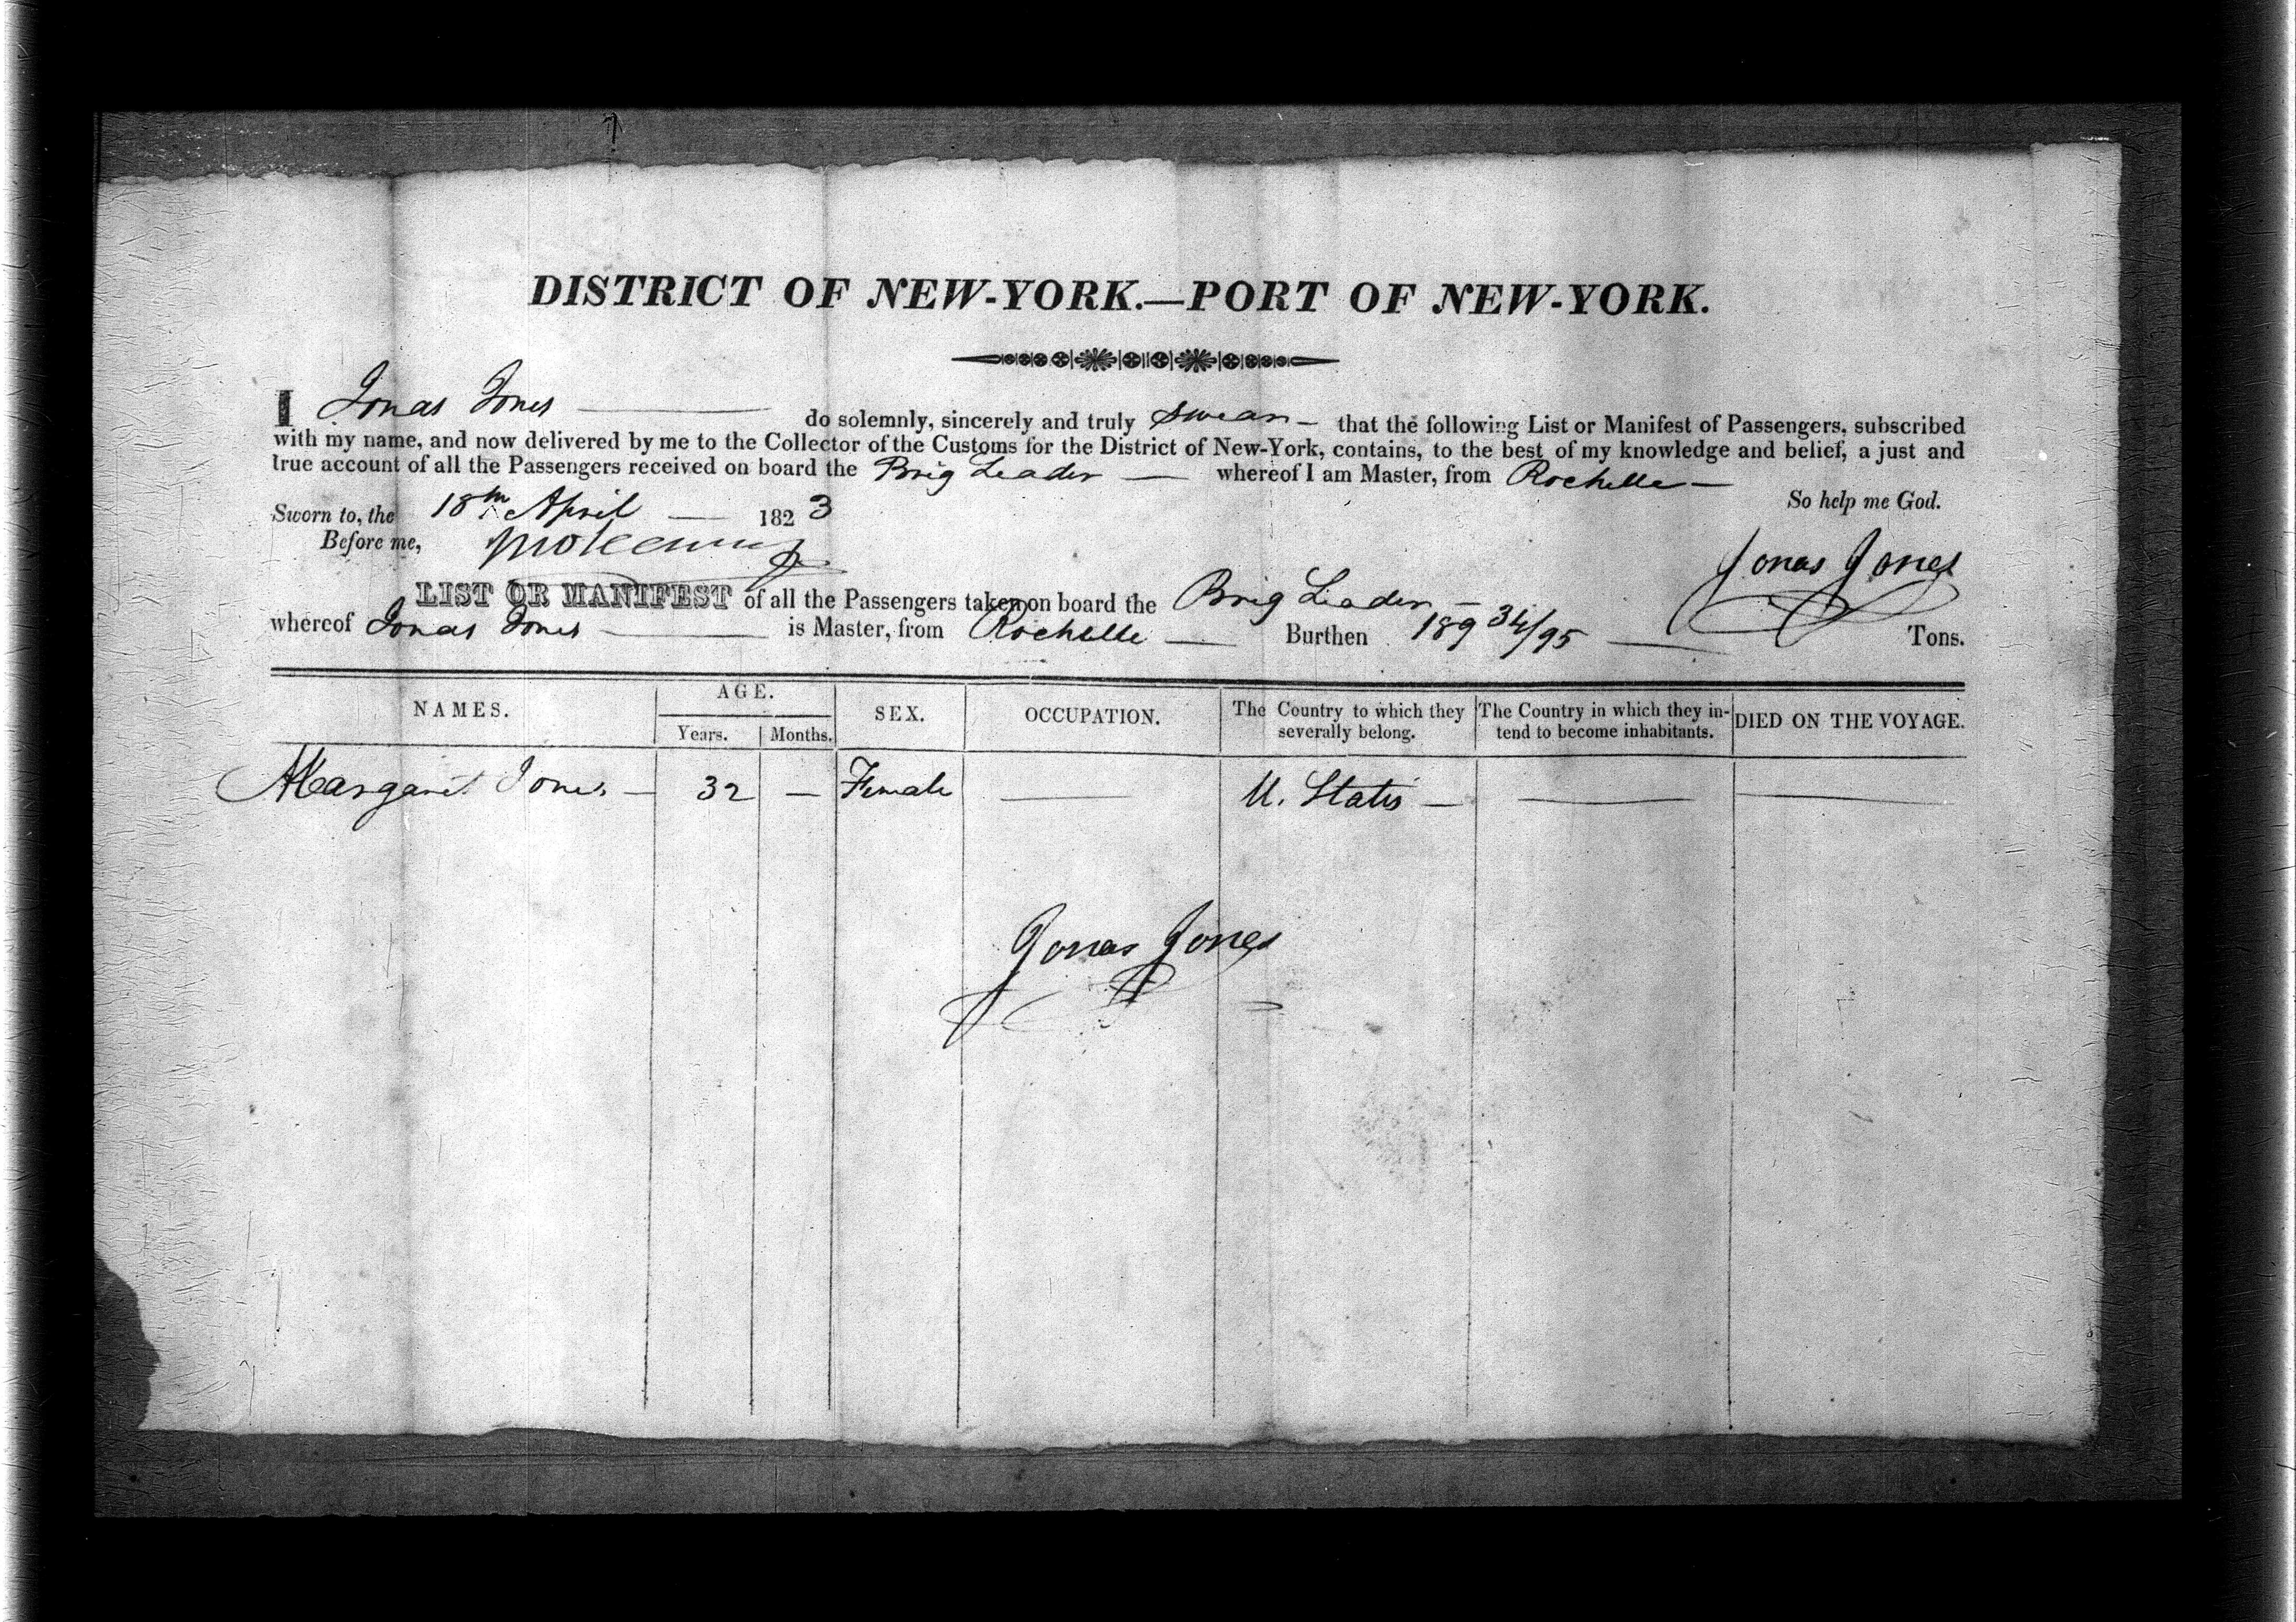 DISTRICT OF NEW-YORK.—PORT OF NEW-YORK.
I Jonas Jones — do solemnly, sincerely and truly swear — that the following List or Manifest of Passengers, subscribed
with my name, and now delivered by me to the Collector of the Customs for the District of New-York, contains, to the best of my knowledge and belief, a just and
true account of all the Passengers received on board the Brig Leader — whereof I am Master, from Rochelle —
So help me God.
Sworn to, the 18th April — 1823
Before me,
Jonas Jones
LIST OR MANIFEST of all the Passengers taken on board the Brig Leader —
whereof Jonas Jones — is Master, from Rochelle — Burthen 189 34/95 — Tons.
NAMES. AGE. SEX. OCCUPATION. The Country to which they severally belong. The Country in which they in-tend to become inhabitants. DIED ON THE VOYAGE.
Years. Months.
Margaret Jones — 32 — Female — U. States — — —
Jonas Jones